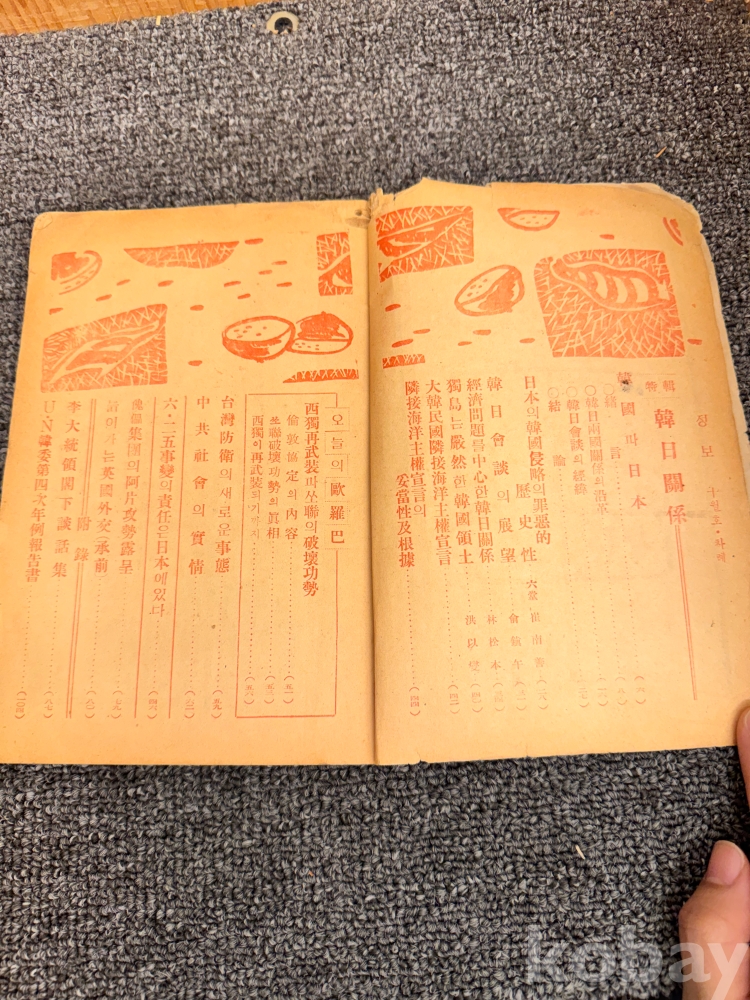 정보
구월호·차례
特輯 韓日關係
韓國과 日本
○緖言
○韓日兩國關係의 沿革
○韓日會談의 經緯
○結論
日本의 韓國侵略의 罪惡的
歷史性 六堂 崔南善
韓日會談의 展望
經濟問題를 中心한 韓日關係 林松本
獨島는 嚴然한 韓國領土 洪以燮
大韓民國隣接海洋主權宣言
隣接海洋主權宣言의
妥當性及根據
오늘의 歐羅巴
西獨再武裝과 쏘聯의 破壞功勢
倫敦協定의 內容
쏘聯破壞功勢의 眞相
西獨이 再武裝되기까지
台灣防衛의 새로운 事態
中共社會의 實情
六·二五事變의 責任은 日本에 있다
傀儡集團의 阿片攻勢露呈
英國外交(承前)
附錄
李大統領閣下談話集
U·N韓委第四次年例報告書
kobay